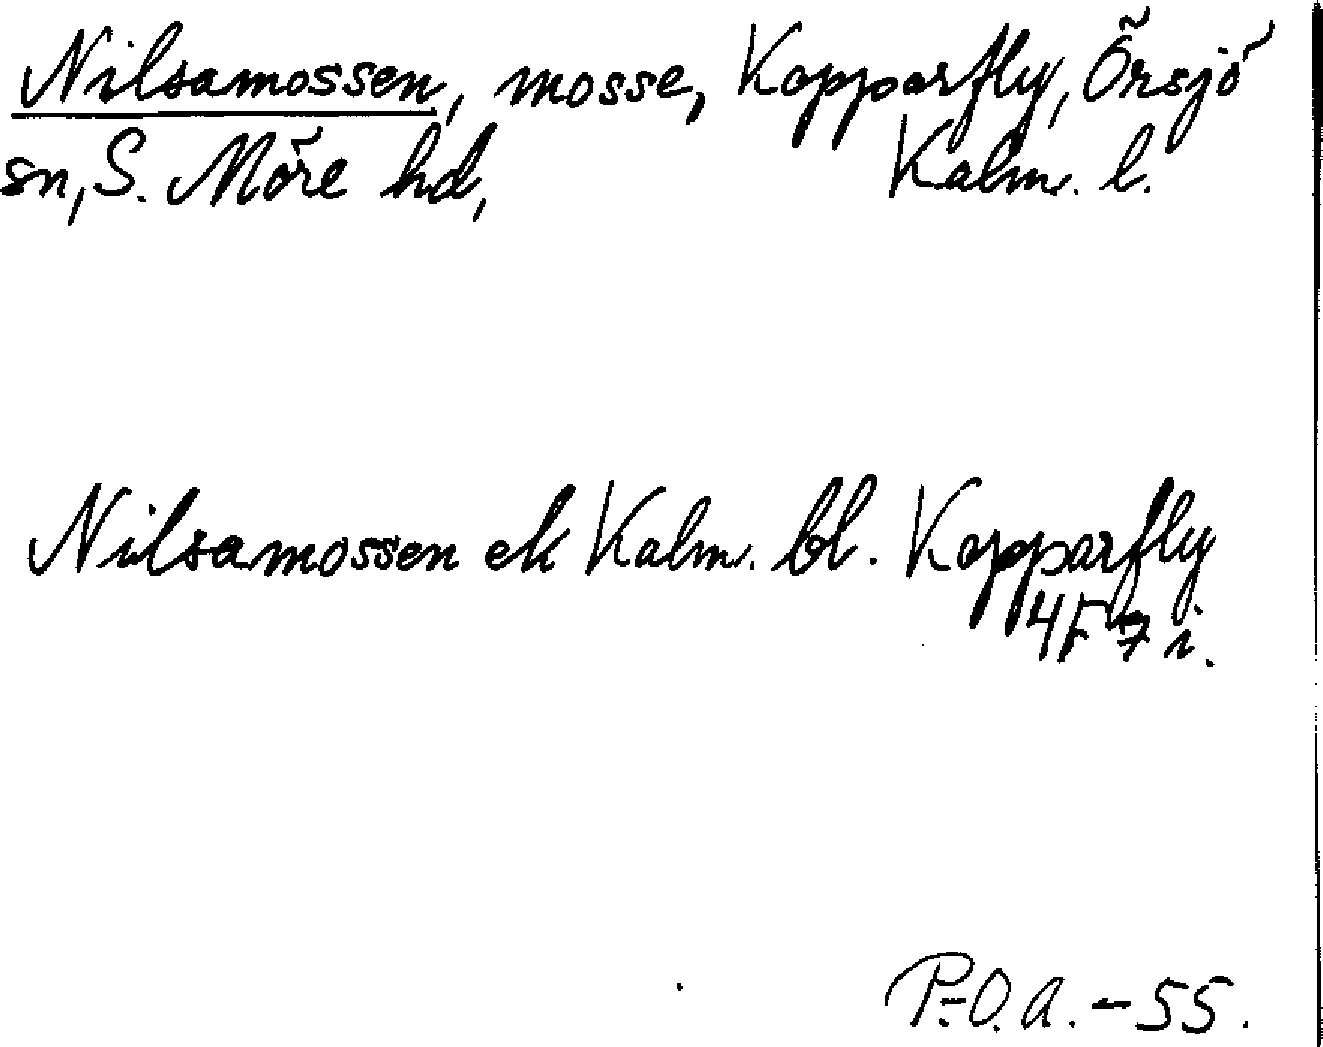 Nilsamossen, mosse, Kopparfly, Örsjö
sn, S. Möre hd, Kalm. l.
Nilsamossen ek Kalm. bl. Kopparfly
4F 7 i.
P.-O. A. - 55.